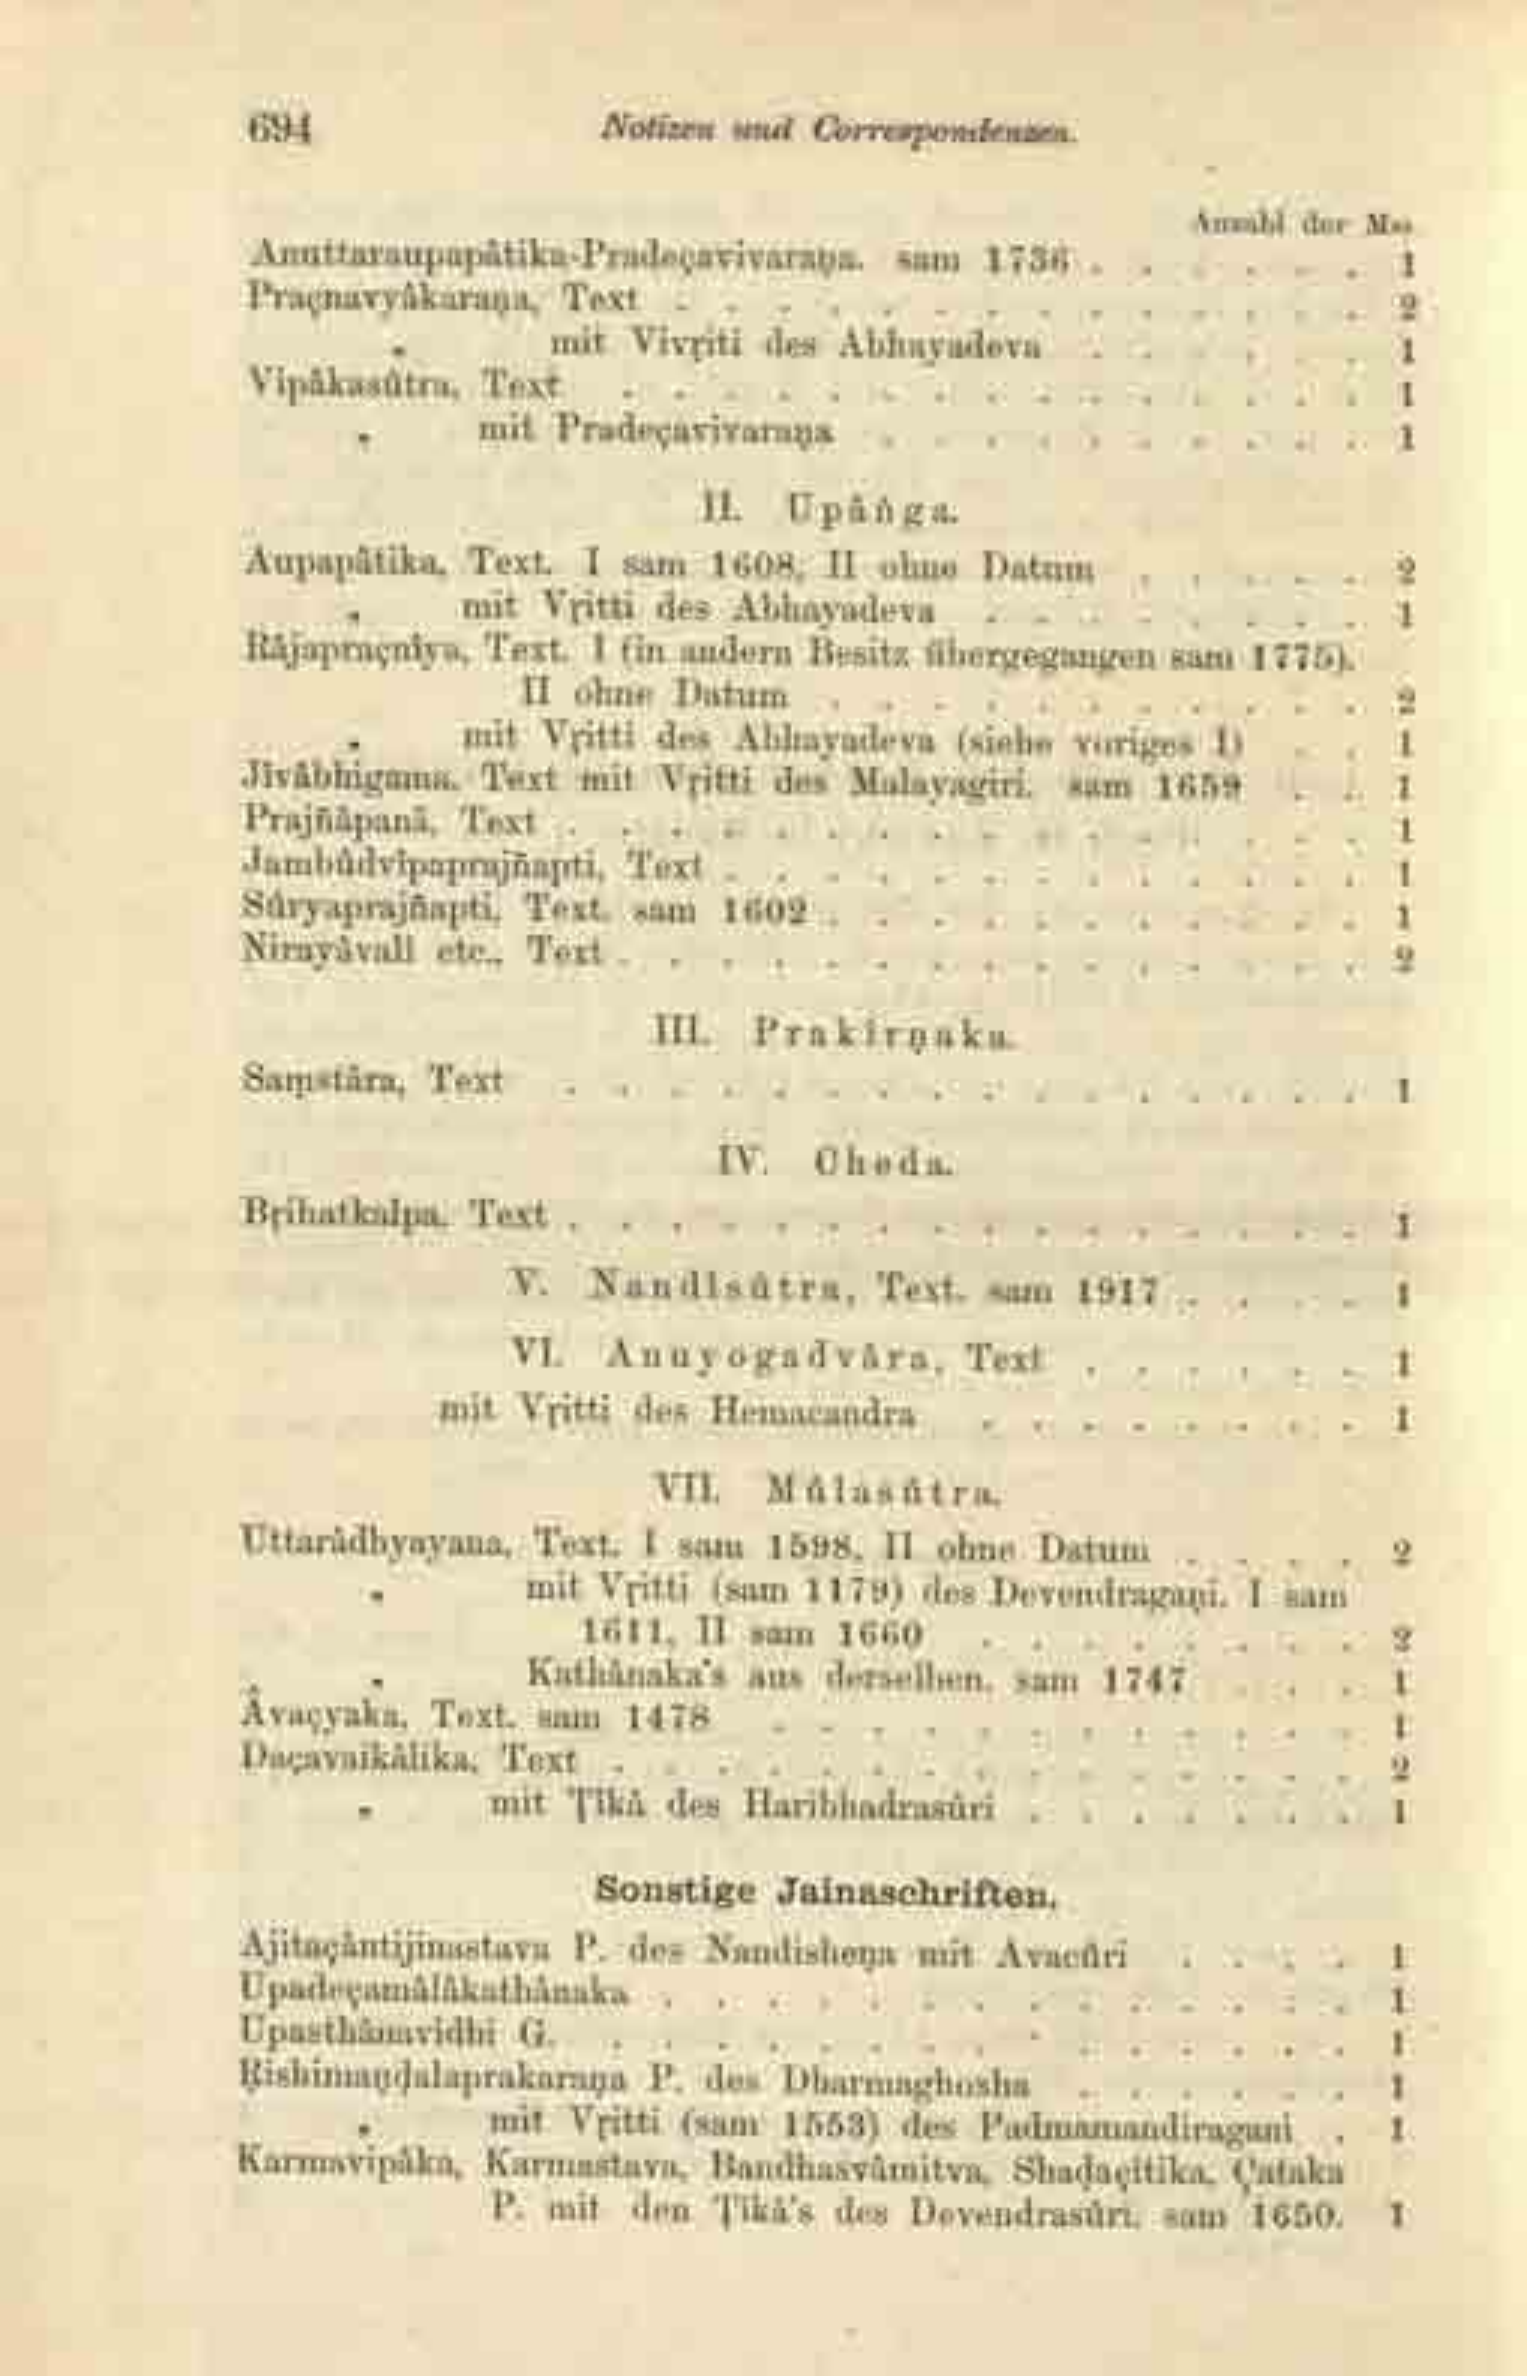 694 Notizen und Correspondenzen.
Anzahl der Mss.
Anuttaraupapâtika-Pradeçavivaraṇa. sam 1736 . . . . . . 1
Praçnavyâkaraṇa, Text . . . . . . . . . . . . . . 2
„ mit Vivṛiti des Abhayadeva . . . . . . 1
Vipâkasûtra, Text . . . . . . . . . . . . . . . 1
„ mit Pradeçavivaraṇa . . . . . . . . . . 1
II. Upâṅga.
Aupapâtika, Text. I sam 1608, II ohne Datum . . . . . 2
„ mit Vṛitti des Abhayadeva . . . . . . . . 1
Râjapraçnîya, Text. I (in andern Besitz übergegangen sam 1775).
II ohne Datum . . . . . . . . . . . 2
„ mit Vṛitti des Abhayadeva (siehe voriges I) . . 1
Jîvâbhigama. Text mit Vṛitti des Malayagiri. sam 1659 . . 1
Prajñâpanâ, Text . . . . . . . . . . . . . . . . 1
Jambûdvîpaprajñapti, Text . . . . . . . . . . . . . 1
Sûryaprajñapti, Text. sam 1602 . . . . . . . . . . . 1
Nirayâvalî etc., Text . . . . . . . . . . . . . . . 2
III. Prakîrṇaka.
Saṃstâra, Text . . . . . . . . . . . . . . . . 1
IV. Cheda.
Bṛihatkalpa. Text . . . . . . . . . . . . . . . . 1
V. Nandîsûtra, Text. sam 1917 . . . . 1
VI. Anuyogadvâra, Text . . . . . . 1
mit Vṛitti des Hemacandra . . . . . . . . 1
VII. Mûlasûtra.
Uttarâdhyayana, Text. I sam 1598, II ohne Datum . . . . 2
„ mit Vṛitti (sam 1179) des Devendragaṇi. I sam
1611, II sam 1660 . . . . . . . . 2
„ Kathânaka's aus derselben. sam 1747 . . . 1
Âvaçyaka, Text. sam 1478 . . . . . . . . . . . . 1
Daçavaikâlika, Text . . . . . . . . . . . . . . . 2
„ mit Ṭîkâ des Haribhadrasûri . . . . . . . 1
Sonstige Jainaschriften.
Ajitaçântijinastava P. des Nandisheṇa mit Avacûri . . . . 1
Upadeçamâlâkathânaka . . . . . . . . . . . . . . 1
Upasthânavidhi G. . . . . . . . . . . . . . . . 1
Ṛishimaṇḍalaprakaraṇa P. des Dharmaghosha . . . . . . 1
„ mit Vṛitti (sam 1553) des Padmamandiragani . 1
Karmavipâka, Karmastava, Bandhasvâmitva, Shaḍaçîtika, Çataka
P. mit den Ṭîkâ's des Devendrasûri. sam 1650. 1